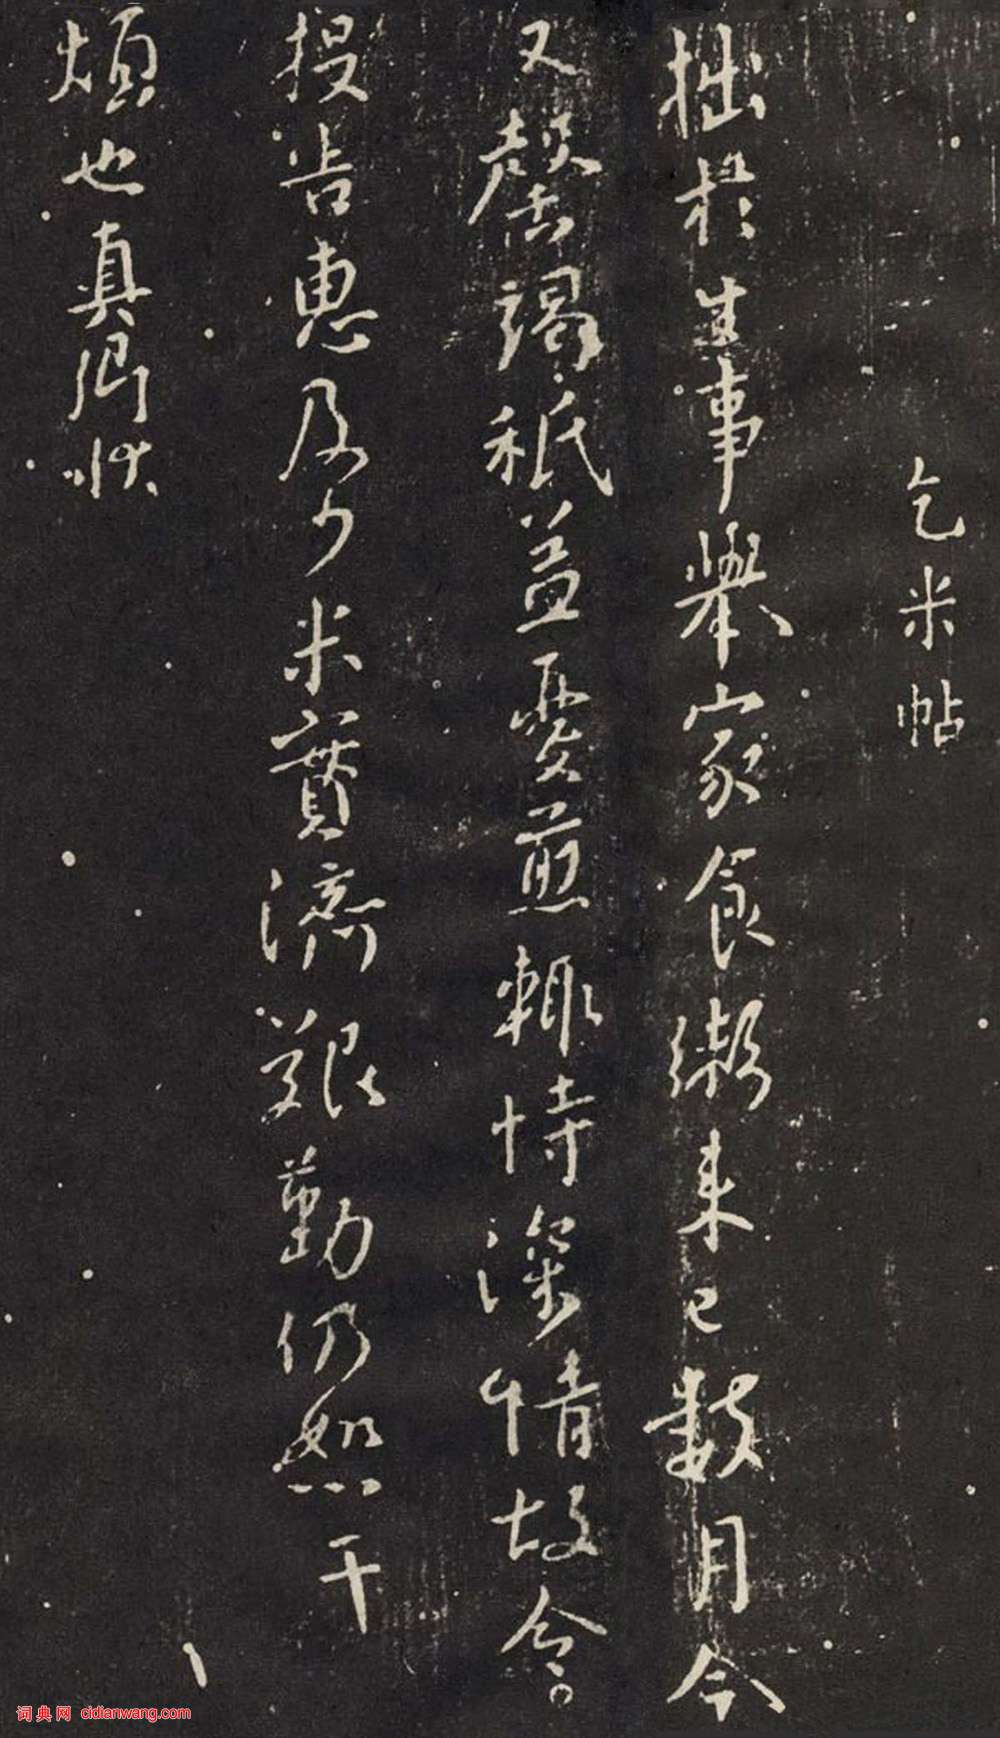 乞米帖
拙於生事舉家食粥来已數月今
又罄竭秖益憂煎輒恃深情故令
投告惠及少米實濟艱勤仍恕干
煩也真卿狀
词典网 cidianwang.com